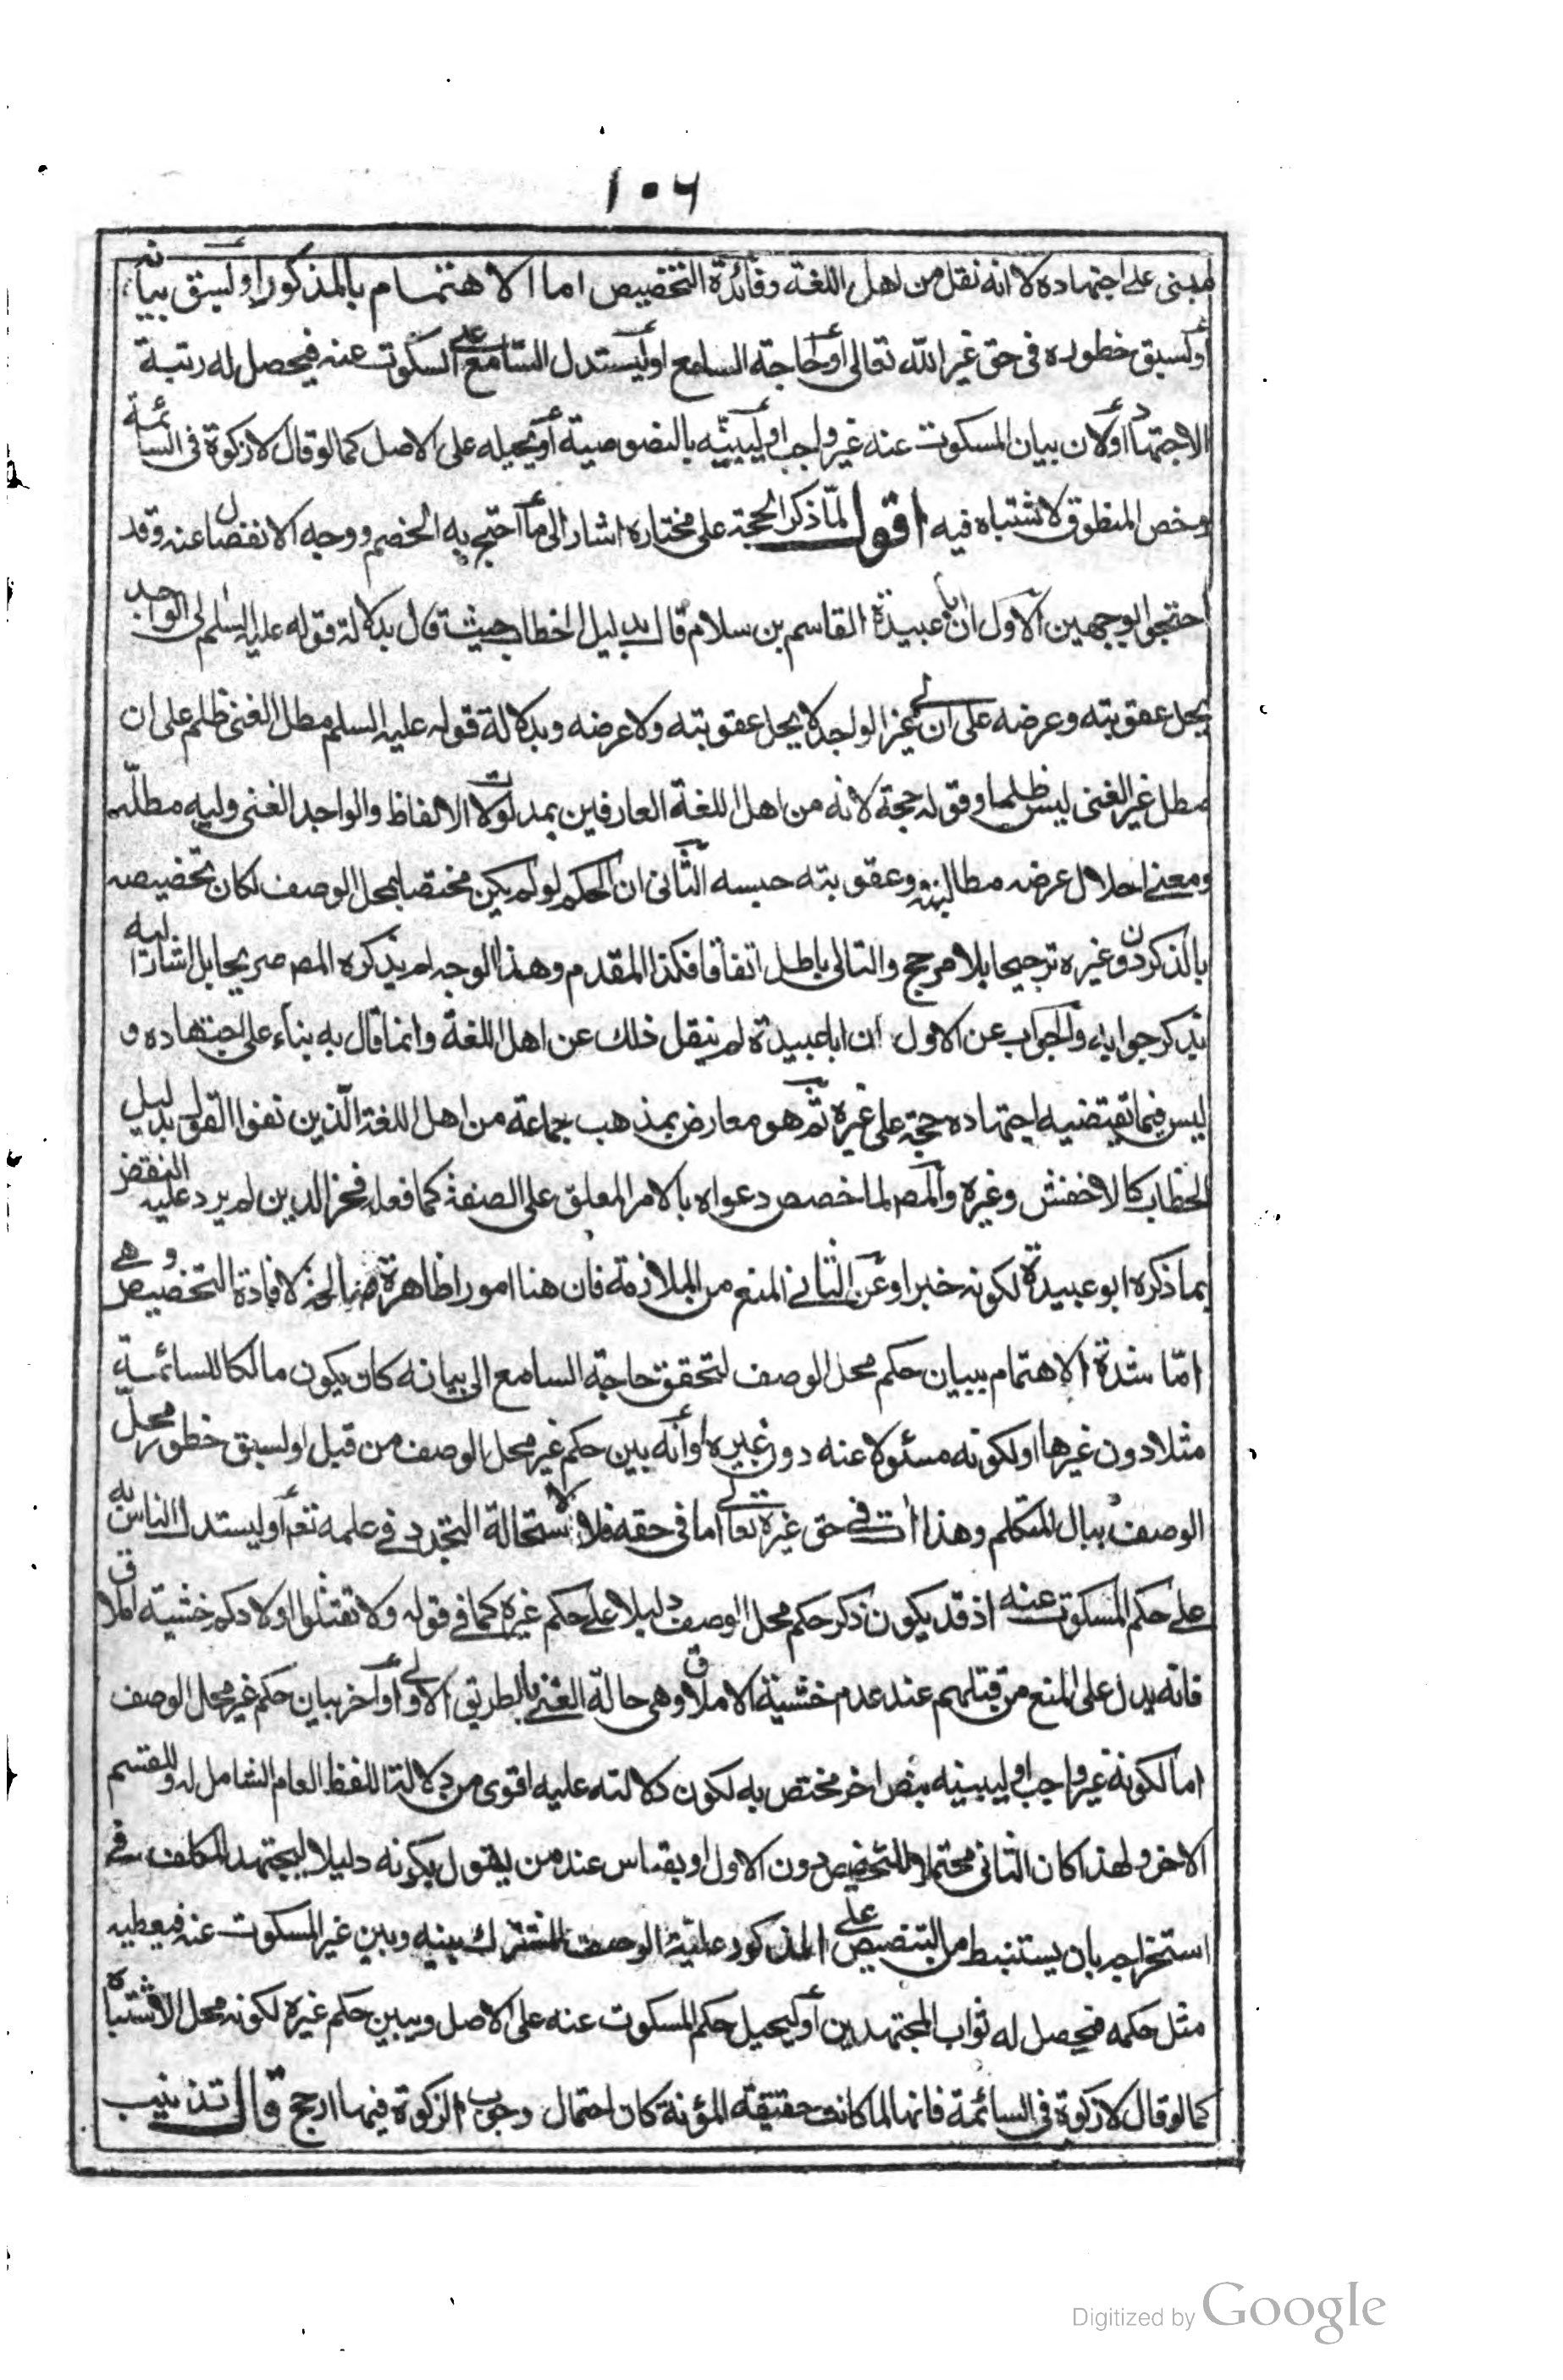 ١٠٦
مبنى على اجتهاده لا انه نقل من اهل اللغة وفائدة التخصيص اما الاهتمام بالمذكور او لسبق بيانه
او لسبق خطوره فى حق غير الله تعالى او لحاجة السامع او ليستدل السامع على السكوت عنه فيحصل له رتبة
الاجتهاد او لان بيان المسكوت عنه غير واجب او ليبيّنه بالنصوصية او يحيله على الاصل كما لو قال لا زكوة فى السائمة
وخص المنطوق لاشتباه فيه اقول لمّا ذكر الحجة على مختاره اشار الى ما احتج به الخصم ووجه الانفصال عنه وقد
احتجوا بوجهين الاول ان ابا عبيدة القاسم بن سلام قال بدليل الخطاب حيث قال بدلالة قوله عليه السلم لى الواجد
يحل عقوبته وعرضه على ان لى غير الواجد لا يحل عقوبته ولا عرضه وبدلالة قوله عليه السلم مطل الغنى ظلم على ان
مطل غير الغنى ليس ظلما وقوله حجة لانه من اهل اللغة العارفين بمدلولات الالفاظ والواجد الغنى وليه مطله
ومعنى احلال عرضه مطالبته وعقوبته حبسه الثانى ان الحكم لو لم يكن مختصا بمحل الوصف لكان تخصيصه
بالذكر دون غيره ترجيحا بلا مرجح والتالى باطل اتفاقا فكذا المقدم وهذا الوجه لم يذكره المصـ صريحا بل اشار اليه
بذكر جوابه والجواب عن الاول ان ابا عبيدة لم ينقل ذلك عن اهل اللغة وانما قال به بناء على اجتهاده و
ليس فيما تقتضيه اجتهاده حجة على غيره ثم هو معارض بمذهب جماعة من اهل اللغة الّذين نفوا القول بدليل
الخطاب كالاخفش وغيره والمصـ لما خصص دعواه بالامر المعلق على الصفة كما فعله فخر الدين لم يرد عليه النقض
بما ذكره ابو عبيدة لكونه خبرا وعن الثانى المنع من الملازمة فان هنا امورا ظاهرة لافادة التخصيص وهى
امّا شدة الاهتمام ببيان حكم محل الوصف لتحقق حاجة السامع الى بيانه كان يكون مالكا للسائمة
مثلا دون غيرها او لكونه مسئولا عنه دون غيره او انه بين حكم غير محل الوصف من قبل او لسبق خطور محلّ
الوصف ببال المتكلم وهذا ات فى حق غيره تعالى اما فى حقه فلا لاستحالة التجدد فى علمه تعـ او ليستدل الناس به
على حكم المسكوت عنه اذ قد يكون ذكر حكم محل الوصف دليلا على حكم غيره كما فى قوله ولا تقتلوا اولادكم خشية املاق
فانه يدل على المنع من قتلهم عند عدم خشية الاملاق وهى حالة الغنى بالطريق الاولى او اخر بيان حكم غير محل الوصف
اما لكونه غير واجب او ليبينه بنص اخر مختص به لكون دلالته عليه اقوى من دلالة اللفظ العام الشامل له وللقسم
الاخر ولهذا كان الثانى محتملا للتخصيص دون الاول او بقياس عند من يقول بكونه دليلا ليجتهد المكلف فى
استخراجه بان يستنبط من التنصيص على المذكور علّية الوصف المشترك بينه وبين غير المسكوت عنه فيعطيه
مثل حكمه فيحصل له ثواب المجتهدين او ليحيل حكم المسكوت عنه على الاصل ويبين حكم غيره لكونه محل الاشتباه
كما لو قال لا زكوة فى السائمة فانها لما كانت خفيفة المؤنة كان احتمال وجوب الزكوة فيها ارجح قال تذنيب
Digitized by Google